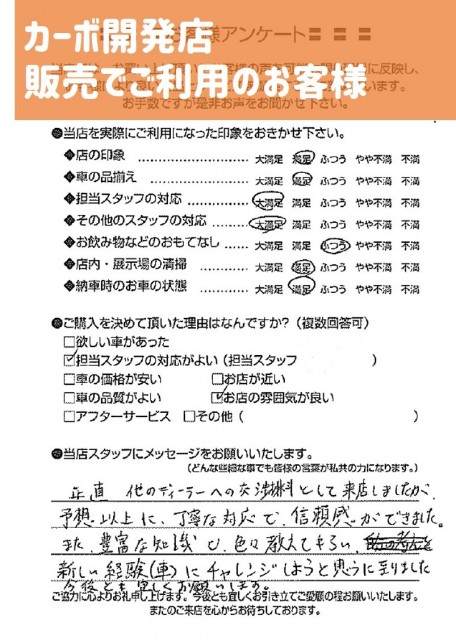 カーボ開発店
販売でご利用のお客様
アンケート
お手数ですが是非お声をお聞かせ下さい。
●当店を実際にご利用になった印象をおきかせ下さい。
◆店の印象 大満足 満足 ふつう やや不満 不満
◆車の品揃え 大満足 満足 ふつう やや不満 不満
◆担当スタッフの対応 大満足 満足 ふつう やや不満 不満
◆その他のスタッフの対応 大満足 満足 ふつう やや不満 不満
◆お飲み物などのおもてなし 大満足 満足 ふつう やや不満 不満
◆店内・展示場の清掃 大満足 満足 ふつう やや不満 不満
◆納車時のお車の状態 大満足 満足 ふつう やや不満 不満
●ご購入を決めて頂いた理由はなんですか?(複数回答可)
□欲しい車があった
☑担当スタッフの対応がよい(担当スタッフ )
□車の価格が安い □お店が近い
□車の品質がよい ☑お店の雰囲気が良い
□アフターサービス □その他( )
●当店スタッフにメッセージをお願いいたします。
(どんな些細な事でも皆様の言葉が私共の力になります。)
正直 他のディーラーへの交渉材料として来店しましたが、
予想以上に、丁寧な対応で、信頼感ができました。
また、豊富な知識で、色々教えてもらい、
新しい経験(車)にチャレンジしようと思うに至りました
今後とも宜しくお願いします。
ご協力に心よりお礼申し上げます。今後とも宜しくお引き立てご愛顧の程お願いいたします。
またのご来店を心からお待ちしております。